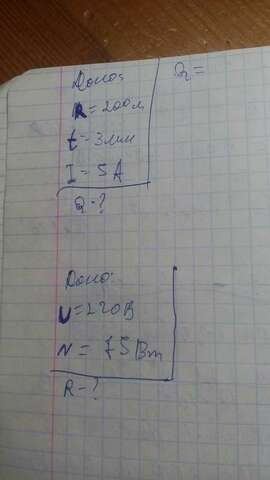 Дано:
R=20Ом
t=3мин
I=5А
Q-?
Q=
Дано:
U=220В
N=75Вт
R-?